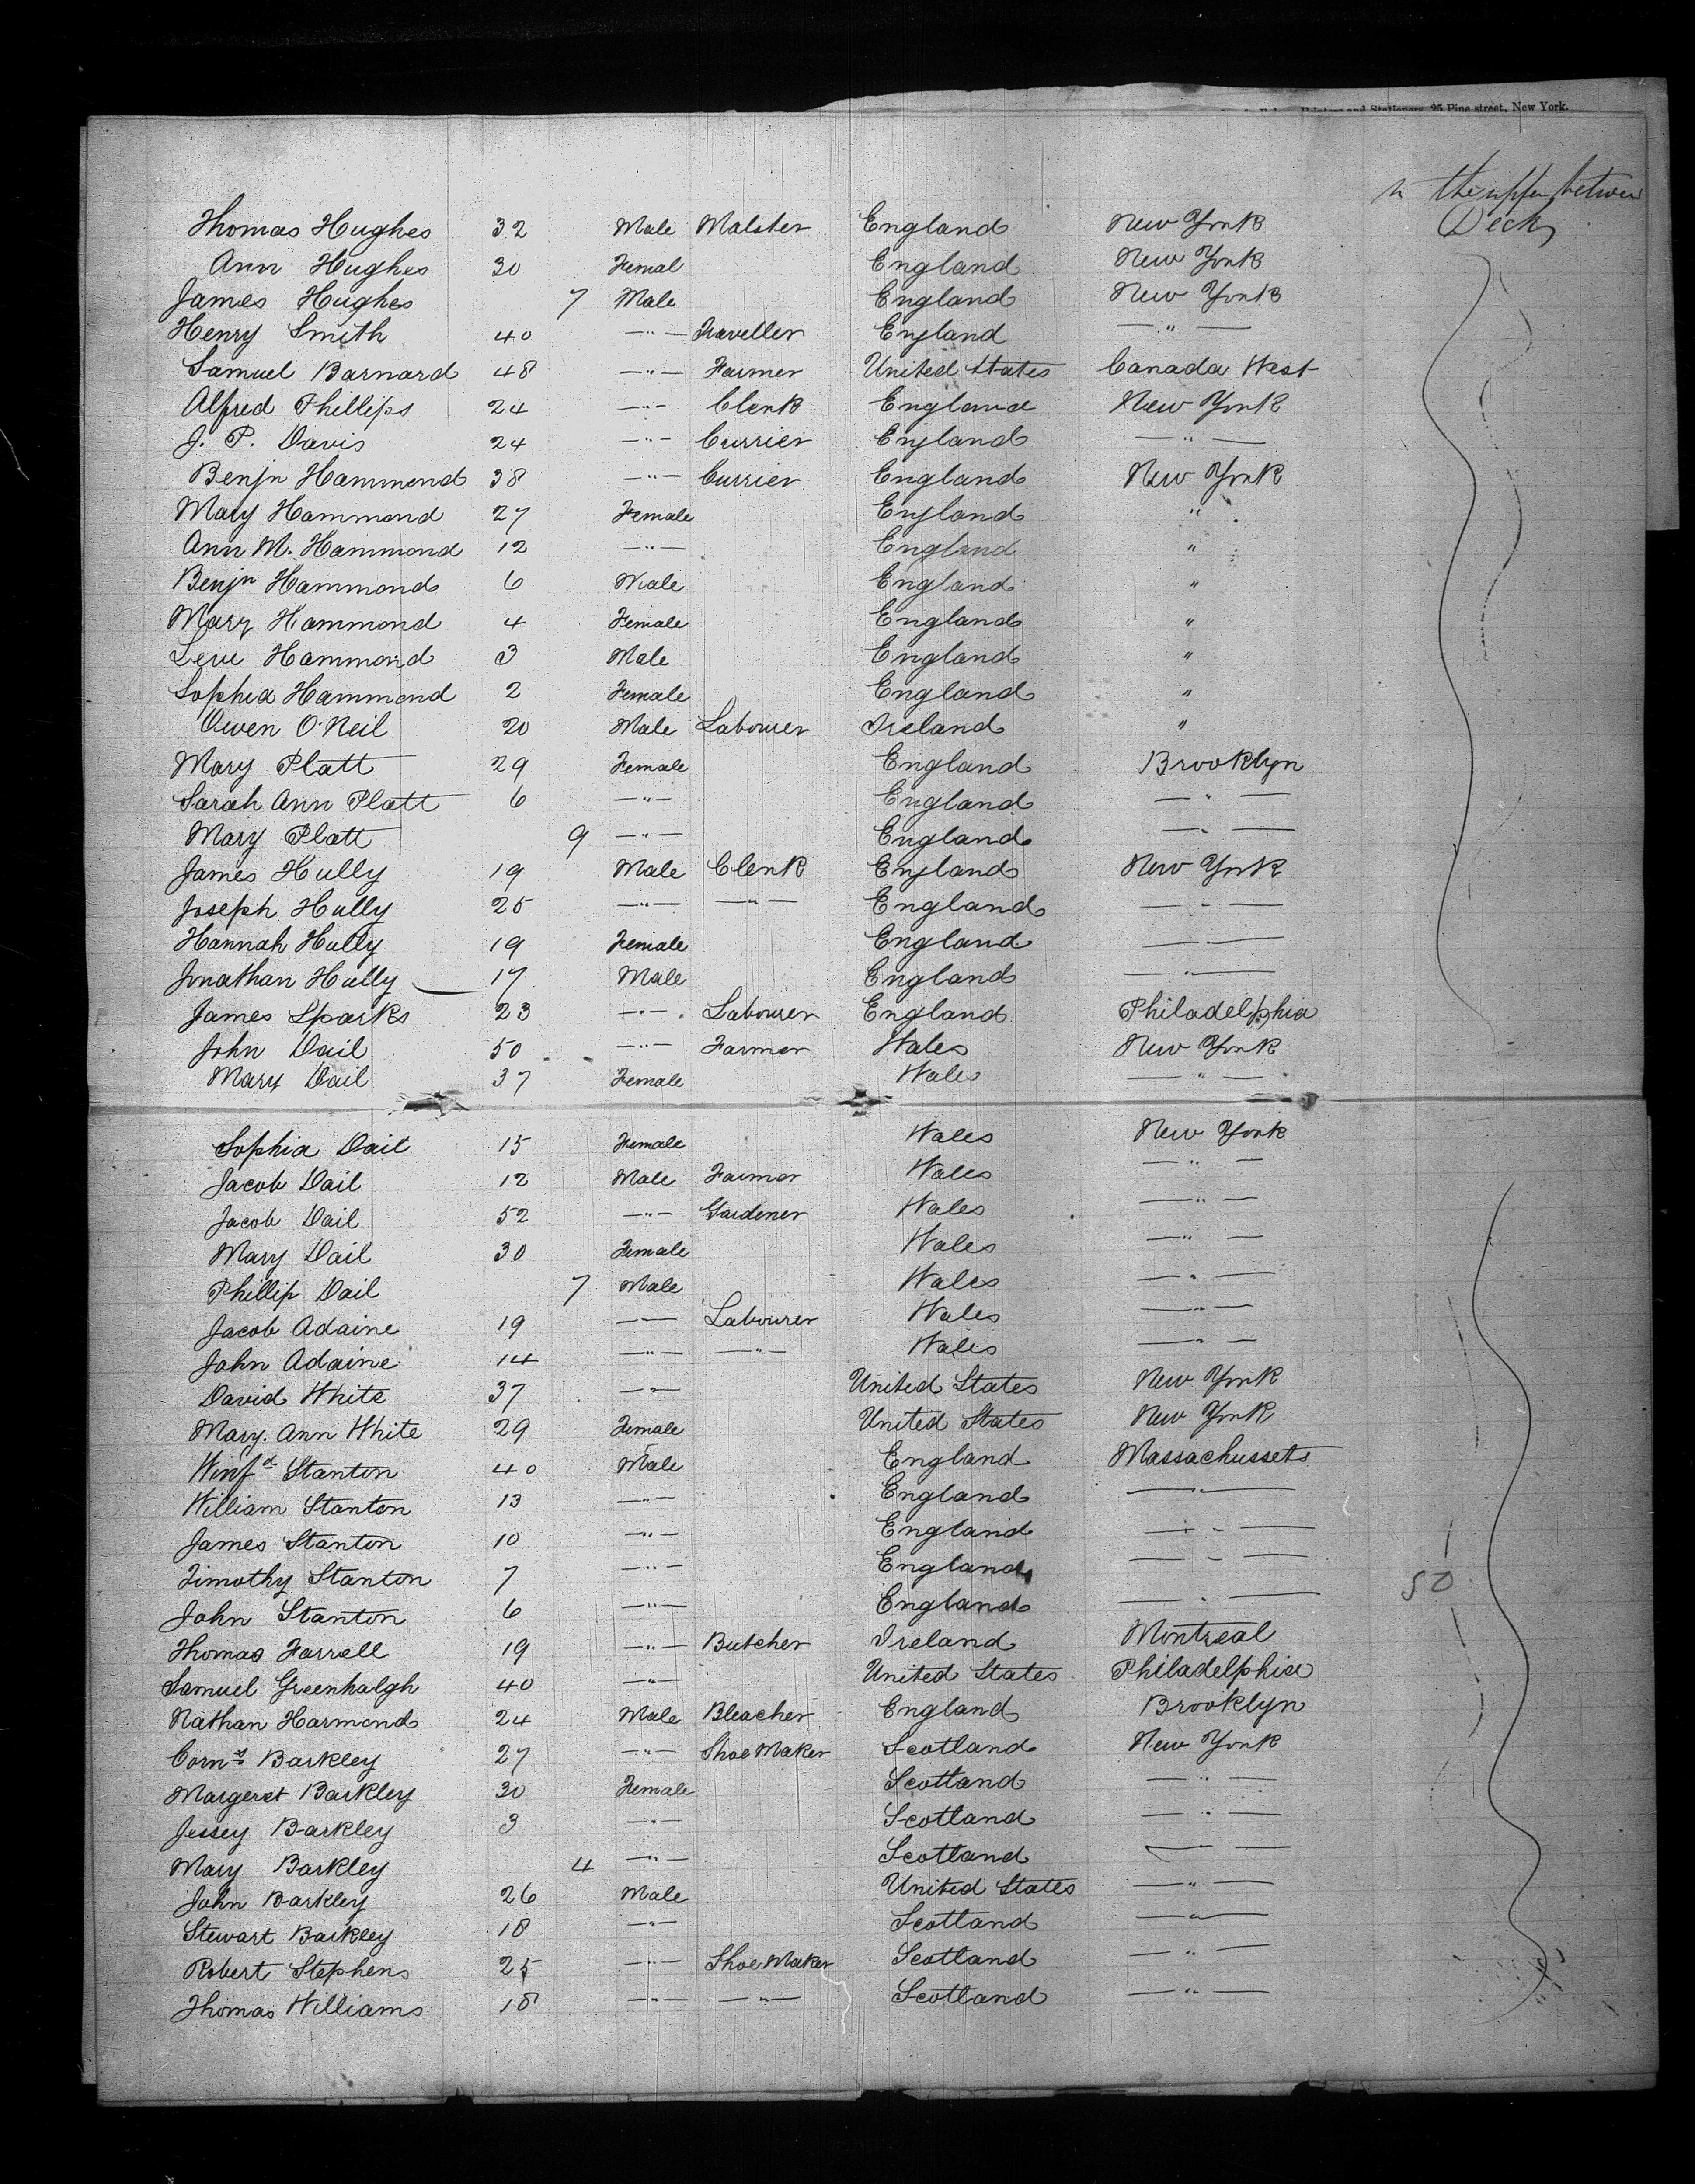 Printers and Stationers, 95 Pine street, New York.
in the upper between
Deck
Thomas Hughes 32 Male Malster England New York
Ann Hughes 30 Femal England New York
James Hughes 7 Male England New York
Henry Smith 40 —"— Traveller England —"—
Samuel Barnard 48 —"— Farmer United States Canada West
Alfred Phillips 24 —"— Clerk England New York
J. P. Davis 24 —"— Currier England —"—
Benjn Hammond 38 —"— Currier England New York
Mary Hammond 27 Female England "
Ann M. Hammond 12 —"— England "
Benjn Hammond 6 Male England "
Mary Hammond 4 Female England "
Hammond 3 Male England "
Sophia Hammond 2 Female England "
Owen O'Neil 20 Male Labourer Ireland "
Mary Platt 29 Female England Brooklyn
Sarah Ann Platt 6 —"— England —"—
Mary Platt 9 —"— England —"—
James Hully 19 Male Clerk England New York
Joseph Hully 25 —"— —"— England —"—
Hannah Hully 19 Female England —"—
Jonathan Hully 17 Male England —"—
James Sparks 23 —"— Labourer England Philadelphia
John Dail 50 —"— Farmer Wales New York
Mary Dail 37 Female Wales —"—
Sophia Dail 15 Female Wales New York
Jacob Dail 12 Male Farmer Wales —"—
Jacob Dail 52 —"— Gardener Wales —"—
Mary Dail 30 Female Wales —"—
Phillip Dail 7 Male Wales —"—
Jacob Adaine 19 —— Labourer Wales —"—
John Adaine 14 —"— —"— Wales —"—
David White 37 —"— United States New York
Mary Ann White 29 Female United States New York
Winfd Stanton 40 Male England Massachussets
William Stanton 13 —"— England —"—
James Stanton 10 —"— England —"—
Timothy Stanton 7 —"— England —"—
50
John Stanton 6 —"— England —"—
Thomas Farrell 19 —"— Butcher Ireland Montreal
Samuel Greenhalgh 40 —"— United States Philadelphia
Nathan Harmond 24 Male Bleacher England Brooklyn
Corns Barkley 27 —"— Shoe Maker Scotland New York
Margeret Barkley 30 Female Scotland —"—
Jessey Barkley 3 —"— Scotland —"—
Mary Barkley 4 —"— Scotland —"—
John Barkley 26 Male United States —"—
Stewart Barkley 18 —"— Scotland —"—
Robert Stephens 25 —"— Shoe Maker Scotland —"—
Thomas Williams 18 —"— —"— Scotland —"—